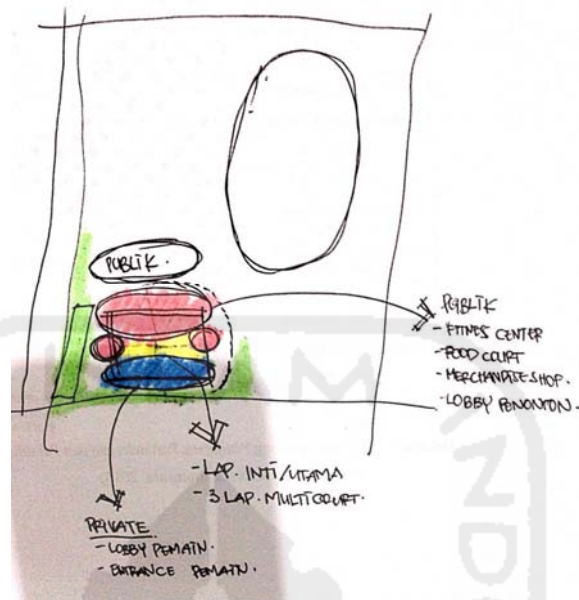 PUBLIK.
PUBLIK
- FITNES CENTER
- FOOD COURT
- MERCHANDISE SHOP.
- LOBBY PENONTON.
- LAP. INTI/UTAMA
- 3 LAP. MULTICOURT.
PRIVATE
- LOBBY PEMAIN.
- ENTRANCE PEMAIN.